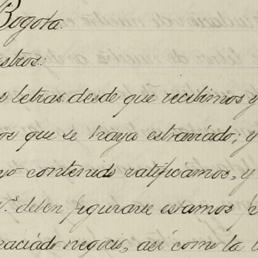 Bogota.
estros:
s letras desde que recibimos y
os que se haya estraviado; y
yo contenido ratificamos, y
deben figurarse estamos
raciado negocio, así como la